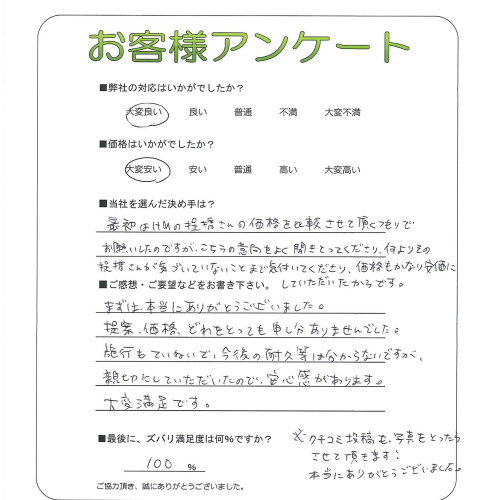 お客様アンケート
■弊社の対応はいかがでしたか？
大変良い 良い 普通 不満 大変不満
■価格はいかがでしたか？
大変安い 安い 普通 高い 大変高い
■当社を選んだ決め手は？
最初はHMの提携さんの価格を比較させて頂くつもりで
お願いしたのですが、こちらの意向をよく聞きとってくださり、何よりその
提携さんが気づいていないことまで気付いてくださり、価格もかなり安価に
していただいたからです。
■ご感想・ご要望などをお書き下さい。
まずは、本当にありがとうございました。
提案、価格、どれをとっても申し分ありませんでした。
施行もていねいで、今後の耐久等は分からないですが、
親切にしていただいたので、安心感があります。
大変満足です。
■最後に、ズバリ満足度は何％ですか？
100 %
※クチコミ投稿も、写真をとったら
させて頂きます！
本当にありがとうございました。
ご協力頂き、誠にありがとうございました。